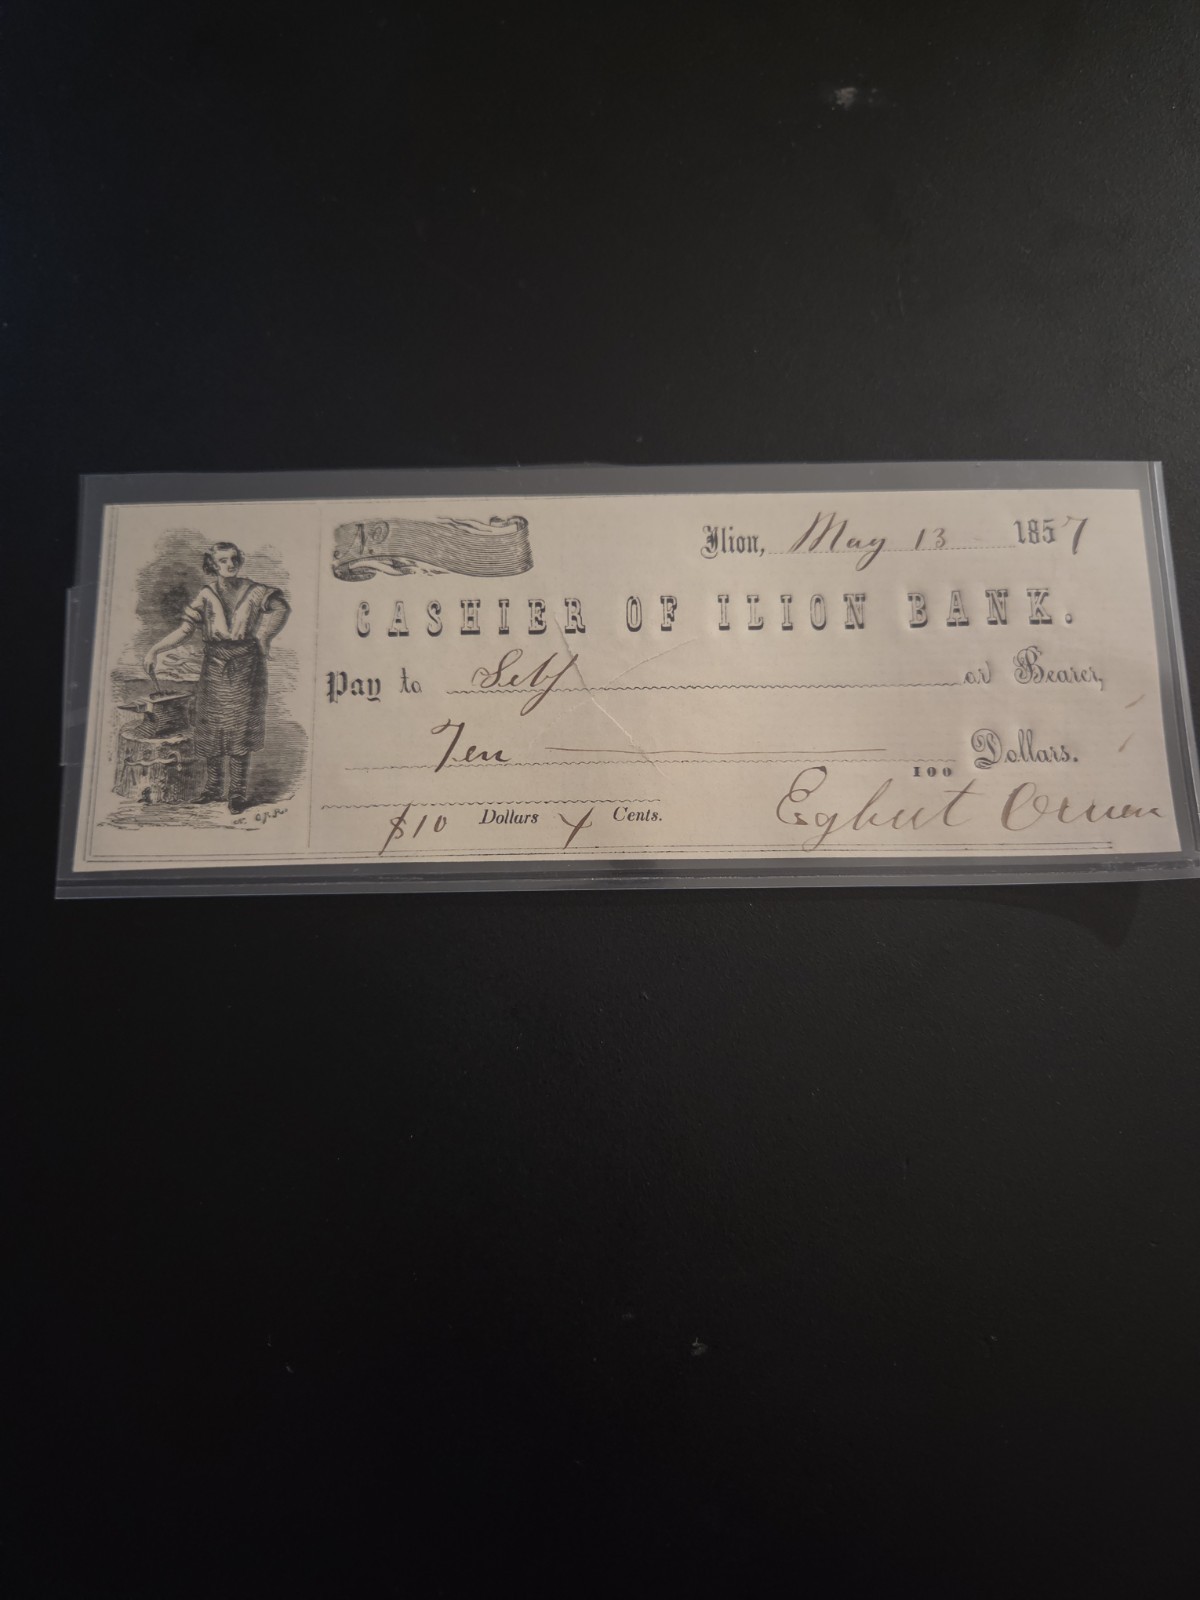 No.
Ilion, May 13 1857
CASHIER OF ILION BANK.
Pay to Self or Bearer,
Ten 100 Dollars.
$10 Dollars Cents.
Egbert